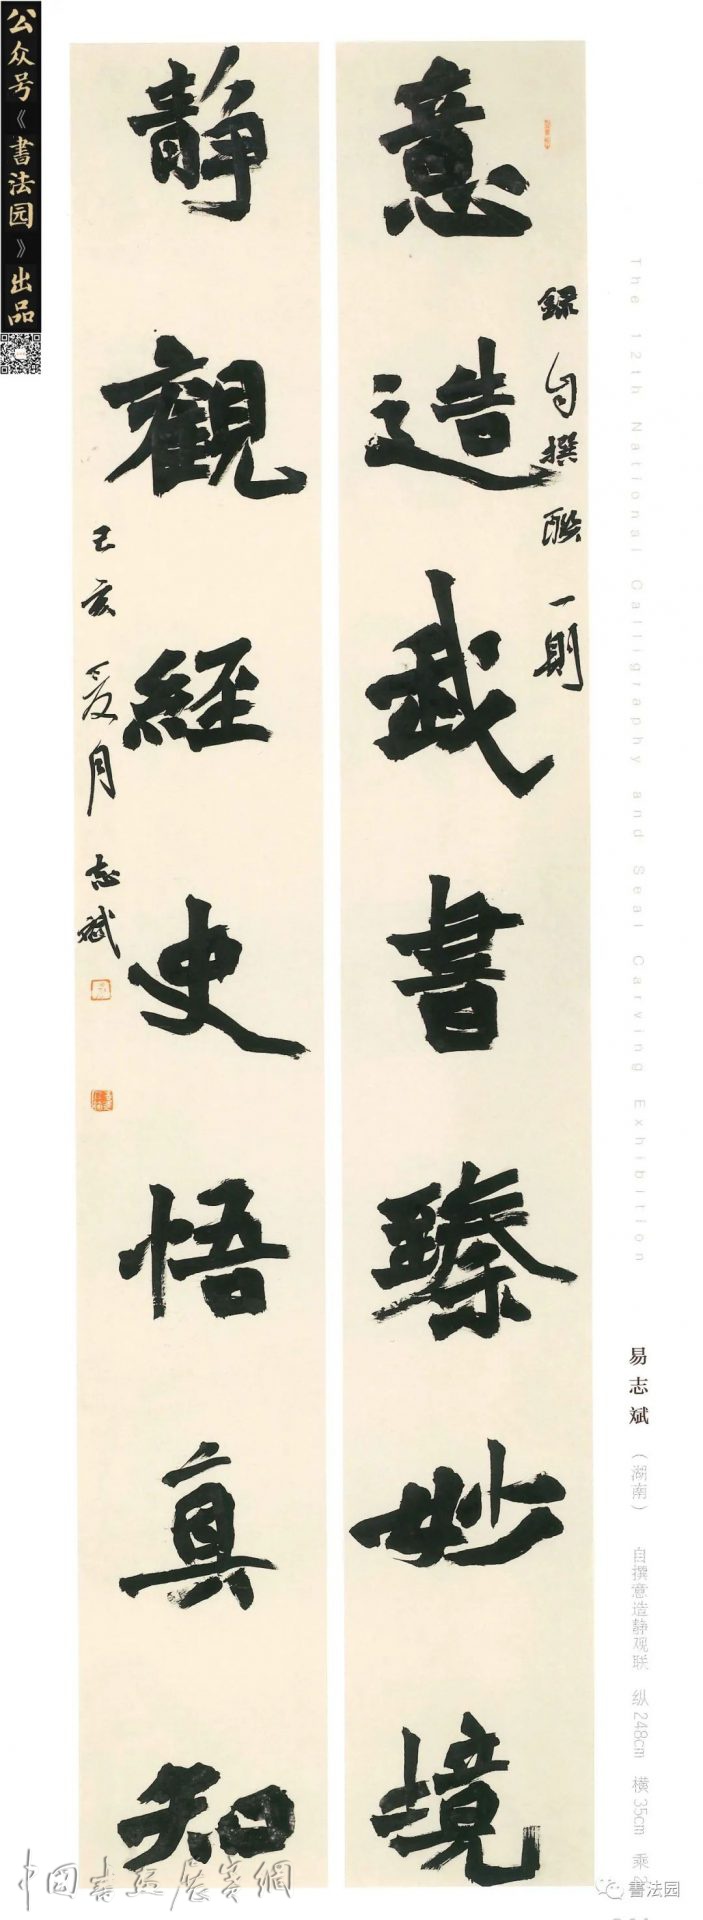 公众号《書法园》出品
意造武書臻妙境
錄自撰聯一則
靜觀經史悟真知
己亥夏月志斌
The 12th National Calligraphy and Seal Carving Exhibition
易志斌（湖南） 自撰意造静观联 纵248cm 横35cm 乘2
中國書法展賽網
書法园